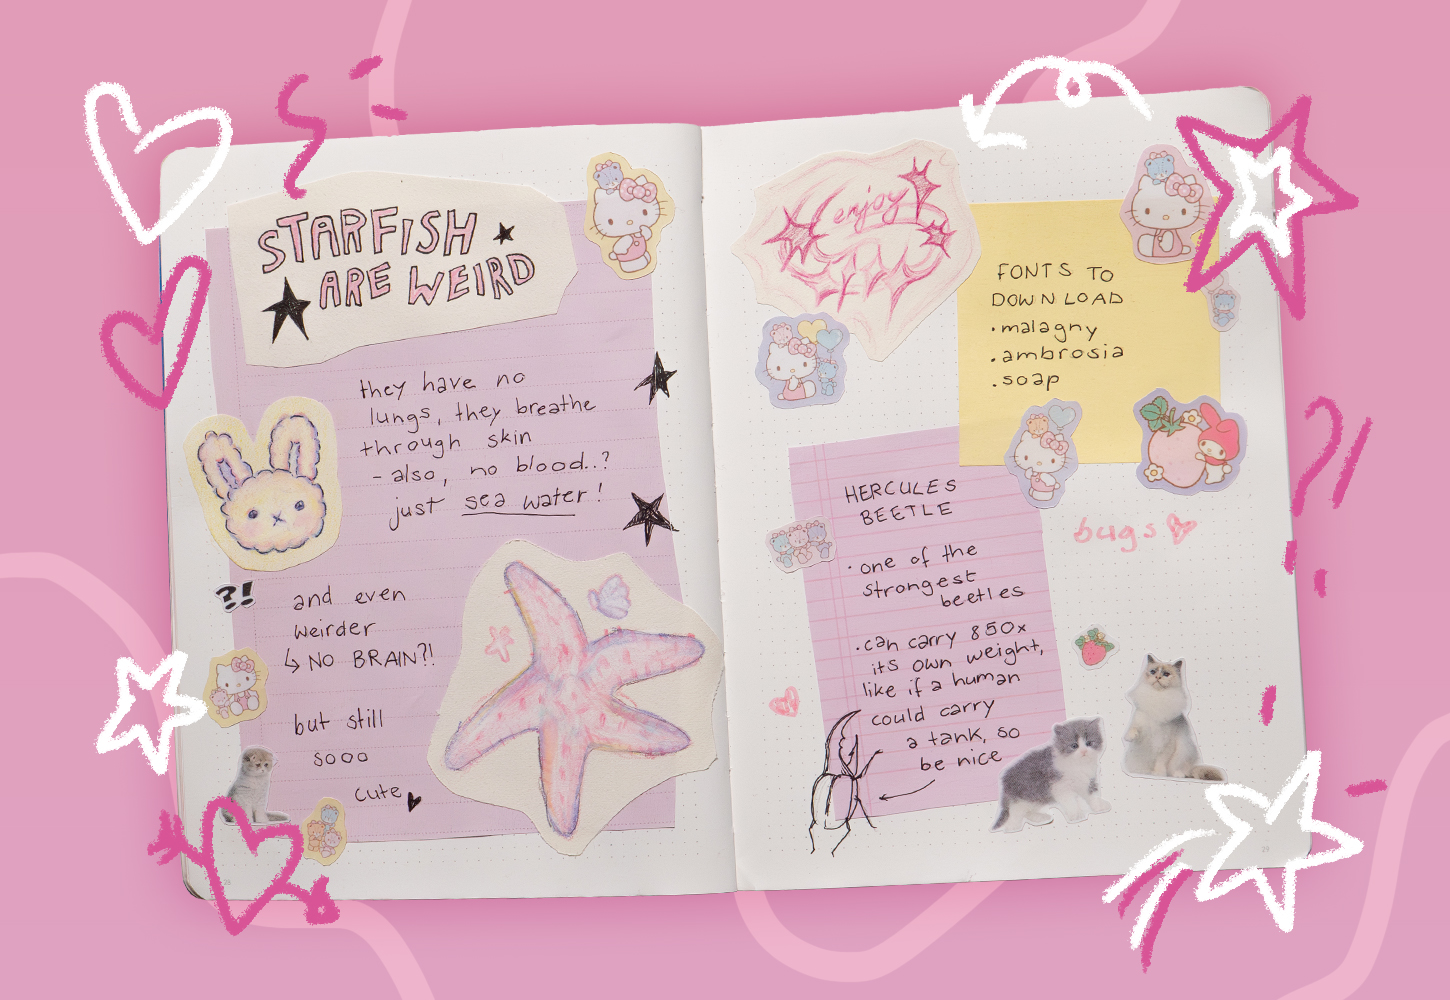 STARFISH
ARE WEIRD
they have no
lungs, they breathe
through skin
- also, no blood..?
just sea water!
?!
and even
weirder
↳ NO BRAIN?!
but still
sooo
cute
enjoy
FONTS TO
DOWNLOAD
• malagny
• ambrosia
• soap
HERCULES
BEETLE
• one of the
strongest
beetles
• can carry 850x
its own weight,
like if a human
could carry
a tank, so
be nice
bugs
?!